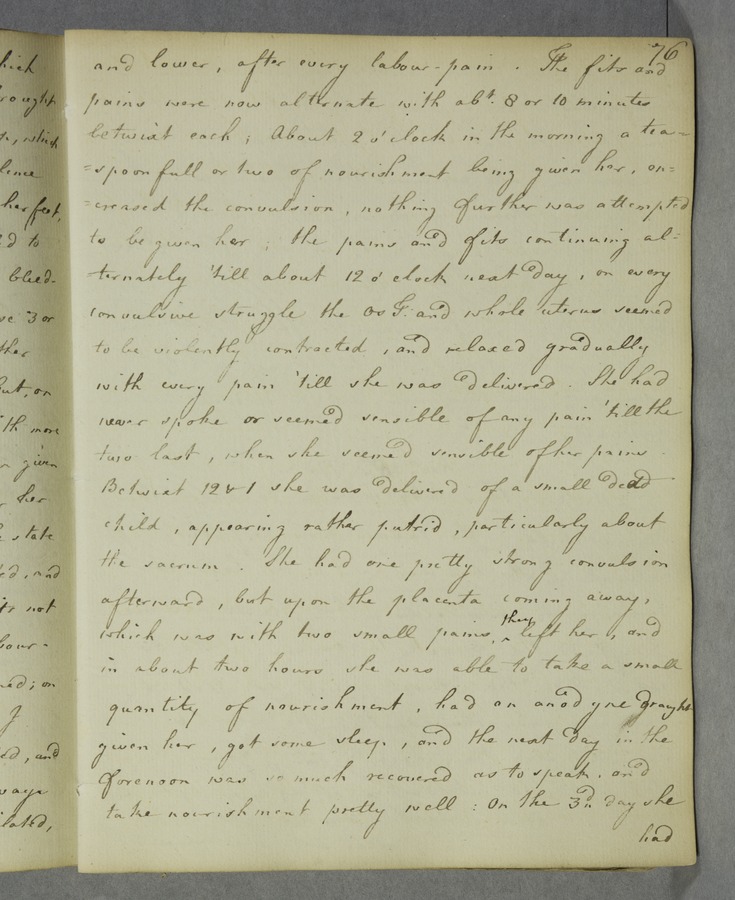 76
and lower, after every labour-pain. The fits and
pains were now alternate with abt. 8 or 10 minutes
betwixt each; About 2 o'clock in the morning a tea=
=spoonfull or two of nourishment being given her, en=
=creased the convulsion, nothing further was attempted
to be given her; the pains and fits continuing al=
=ternately 'till about 12 o'clock next day, on every
convulsive struggle the os G: and whole uterus seemed
to be violently contracted, and relaxed gradually
with every pain 'till she was delivered. She had
never spoke or seemed sensible of any pain 'till the
two last, when she seemed sensible of her pains.
Betwixt 12 & 1 she was deliverd of a small dead
child, appearing rather putrid, particularly about
the sacrum. She had one pretty strong convulsion
afterward, but upon the placenta coming away,
which was with two small pains, they left her, and
in about two hours she was able to take a small
quantity of nourishment, had an anodyne draught
given her, got some sleep, and the next day in the
forenoon was so much recovered as to speak, and
take nourishment pretty well: On the 3d day she
had
hich
rought
which
lence
her feet,
d to
bleed-
se 3 or
ther
but, on
th more
given
her
state
ed, and
not
bour-
ned; on
ed, and
ways
lated,